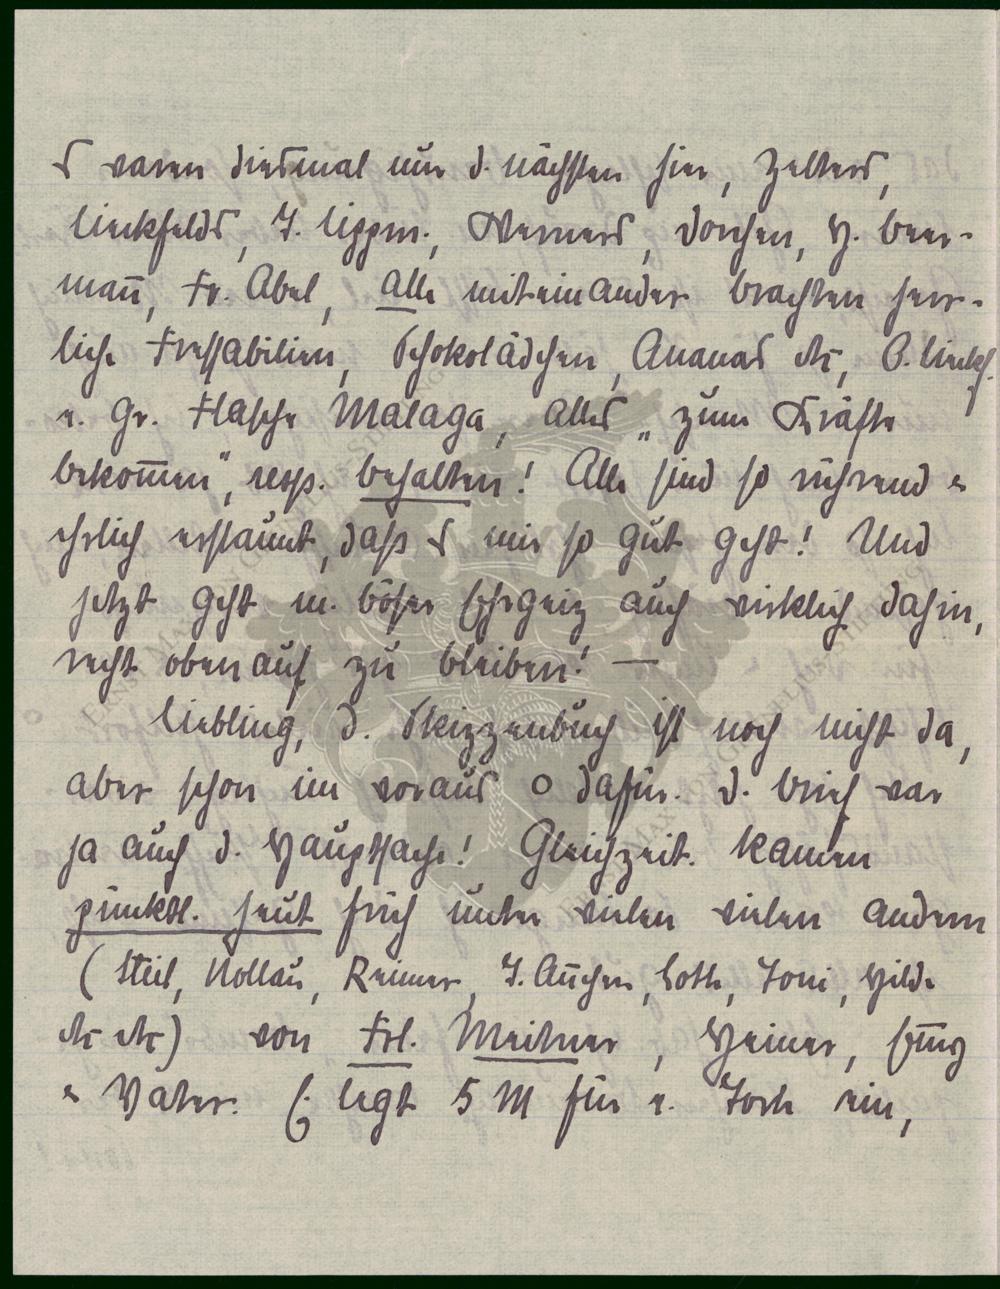 S waren diesmal nur d. nächsten hier, Zelters,
Linkfelds, J. Lippm., Werners, Dorchen, H. Beer-
mañ, Fr. Abel, alle miteinander brachten herr-
liche Fressabilien, Schokolädchen, Ananas etc, O. Linkf.
e. gr. Flasche Malaga, alles „zum Kräfte
bekom̄en", resp. behalten! Alle sind so rührend &
ehrlich erstaunt, daß S mir so gut geht! Und
jetzt geht m. böser Ehrgeiz auch wirklich dahin,
recht obenauf zu bleiben! —
Liebling, d. Skizzenbuch ist noch nicht da,
aber schon im voraus o dafür. D. Brief war
ja auch d. Hauptsache! Gleichzeit. kamen
pünktl. heut früh unter vielen vielen andern
(Steil, Nollau, Reimer, J. Añchen, Lotte, Toni, Hilde
etc etc) von Frl. Meitner, Heiner,
& Vater. E. legt 5 M für e. Torte ein,